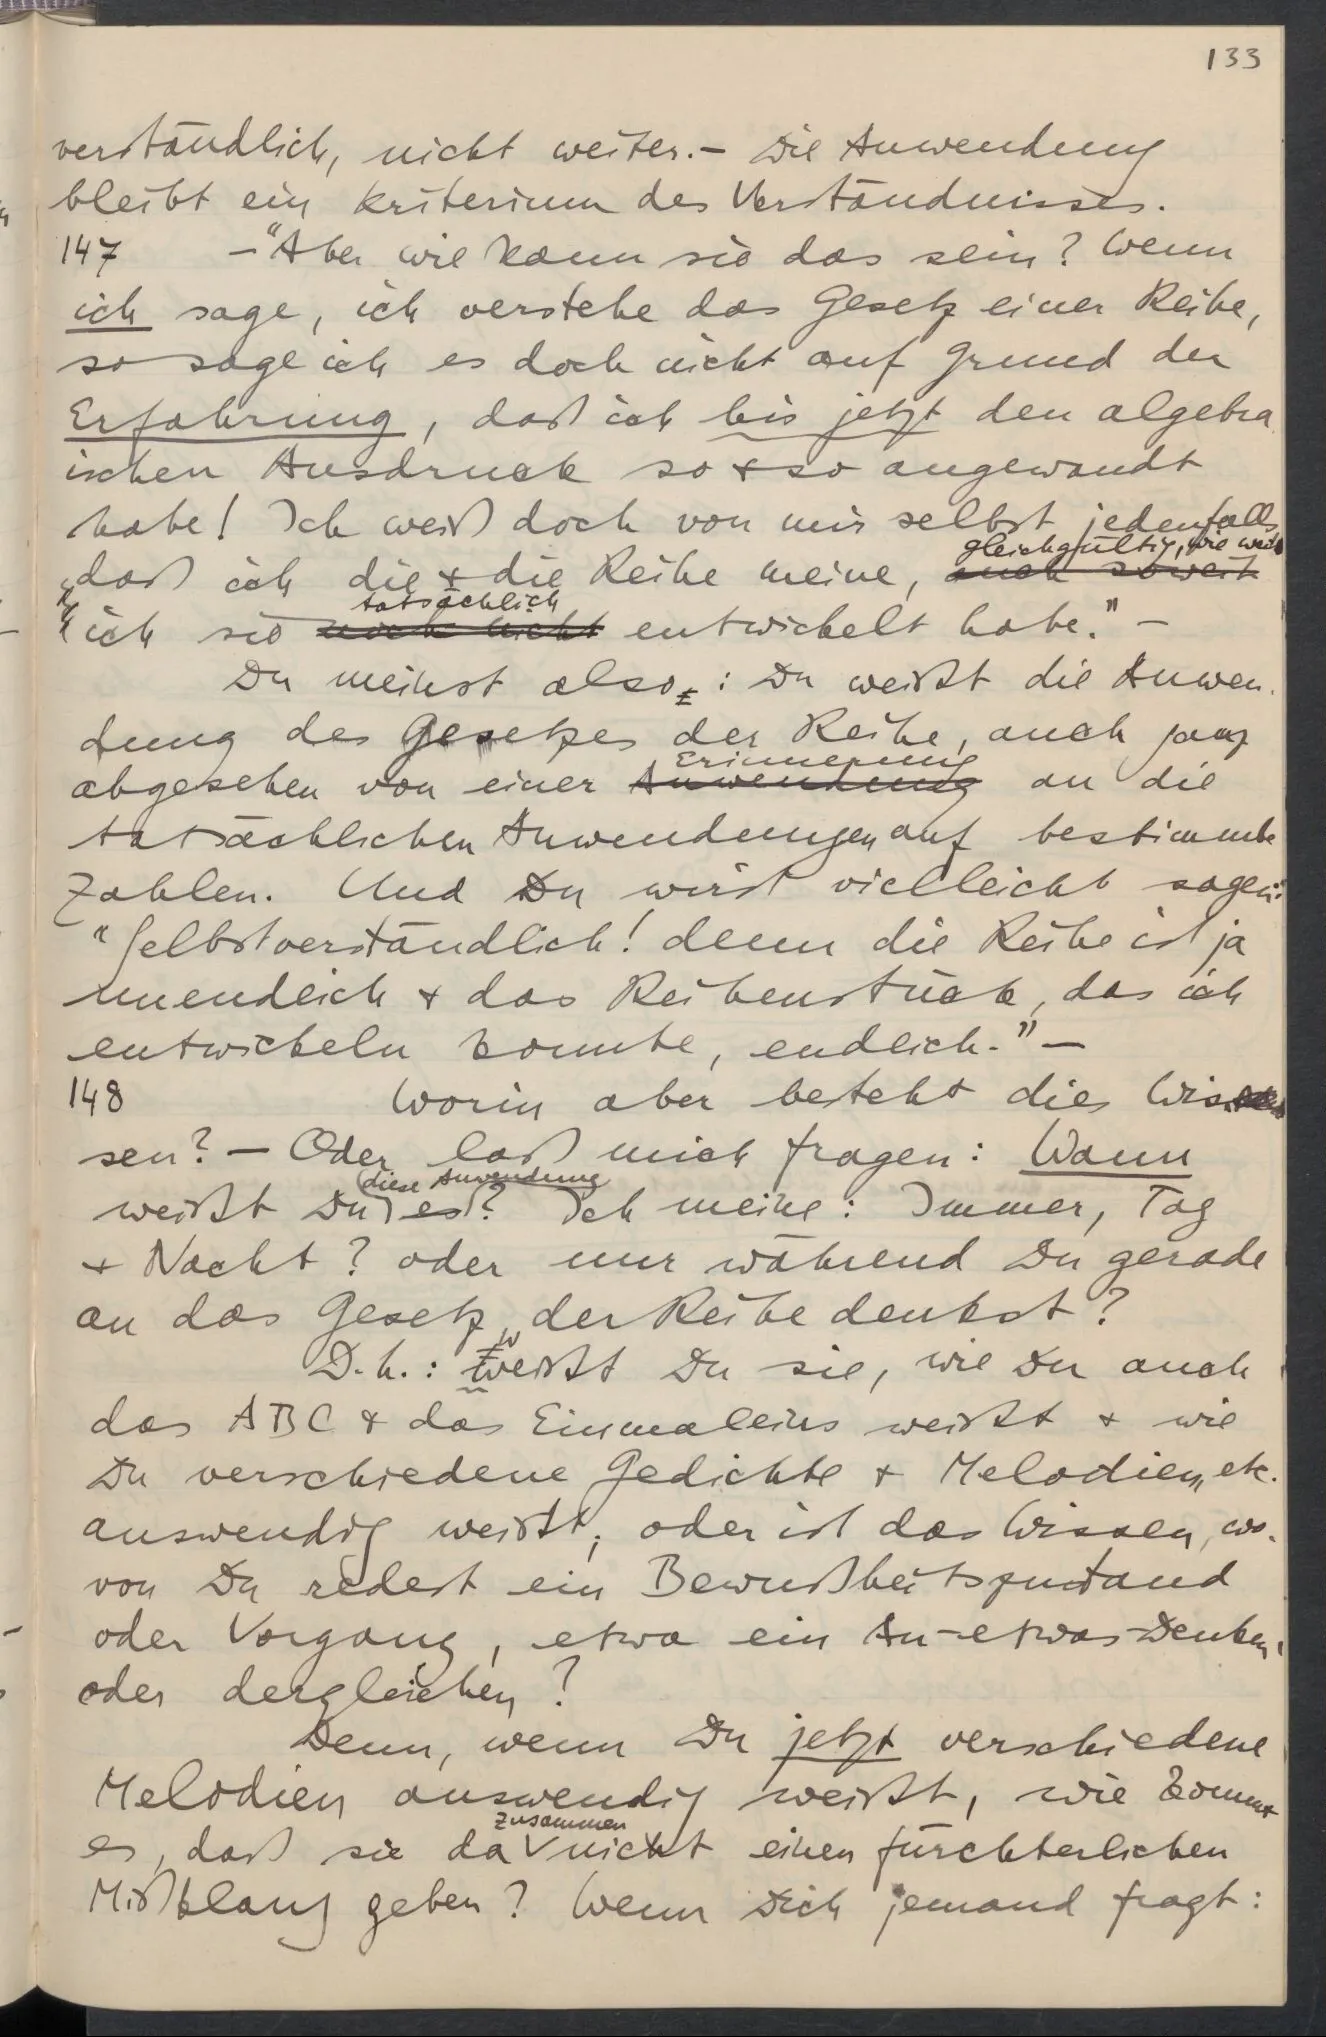 133
verständlich, nicht weiter. – Die Anwendung
bleibt ein Kriterium des Verständnisses.
147 – "Aber wie kann sie das sein? Wenn
ich sage, ich verstehe das Gesetz einer Reihe,
so sage ich es doch nicht auf Grund der
Erfahrung, daß ich bis jetzt den algebra
ischen Ausdruck so & so angewandt
habe! Ich weiß doch von mir selbst jedenfalls
gleichgültig, wie weit
daß ich die & die Reihe meine, auch soweit
tatsächlich
ich sie noch nicht entwickelt habe." –
Du meinst also: Du weißt die Anwen-
dung des Gesetzes der Reihe, auch ganz
Erinnerung
abgesehen von einer Anwendung an die
tatsächlichen Anwendungen auf bestimmte
Zahlen. Und Du wirst vielleicht sagen:
"Selbstverständlich! denn die Reihe ist ja
unendlich & das Reihenstück, das ich
entwickeln konnte, endlich." –
148 Worin aber besteht dies Wis
sen? – Oder laß mich fragen: Wann
diese Anwendung
weißt Du es? Ich meine: Immer, Tag
& Nacht? oder nur während Du gerade
an das Gesetz der Reihe denkst?
D.h.: weißt Du sie, wie Du auch
das ABC & das Einmaleins weißt & wie
Du verschiedene Gedichte & Melodien, etc.
auswendig weißt; oder ist das Wissen, wo-
von Du redest ein Bewußtheitszustand
oder Vorgang, etwa ein An-etwas-Denken,
oder dergleichen?
Denn, wenn Du jetzt verschiedene
Melodien auswendig weißt, wie kommt
zusammen
es, daß sie da nicht einen fürchterlichen
Mißklang geben? Wenn Dich jemand fragt: